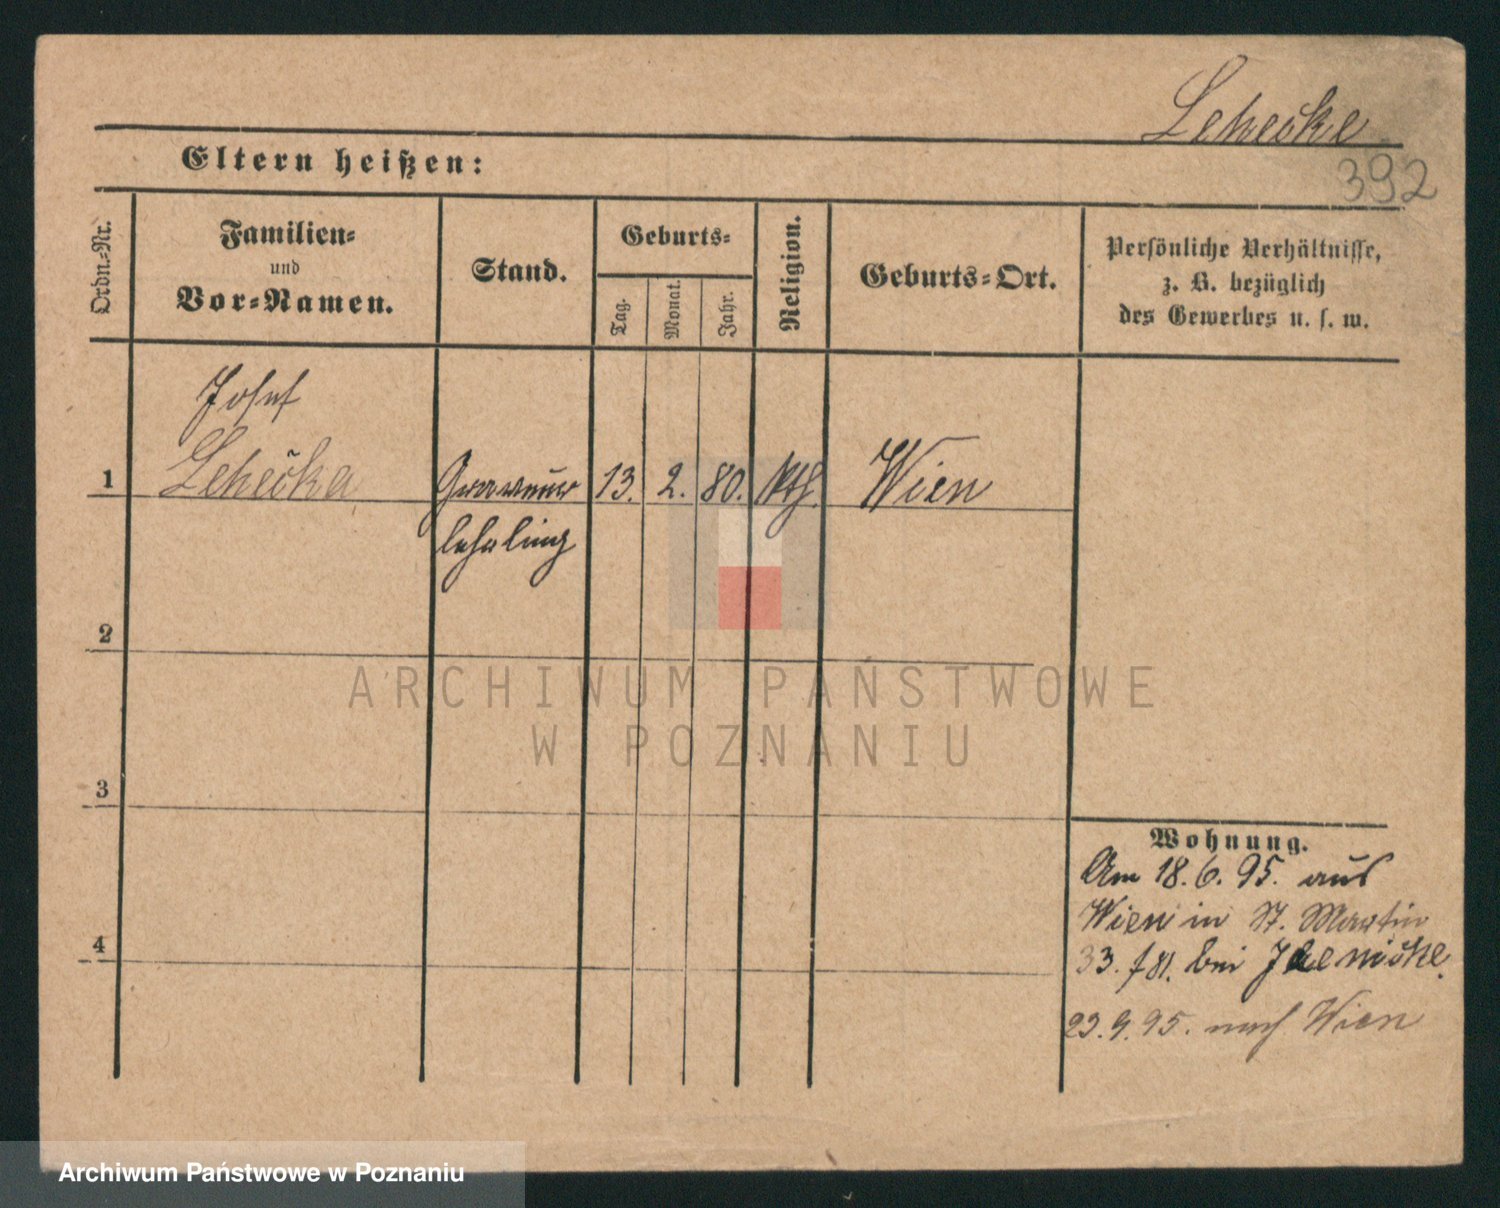 Lehečke
392
Eltern heißen:
Ordn.-Nr.
Familien-
und
Vor-Namen.
Stand.
Geburts-
Tag.
Monat.
Jahr.
Religion.
Geburts-Ort.
Persönliche Verhältnisse,
z. B. bezüglich
des Gewerbes u. s. w.
Josef
1 Lehečka Graveur 13. 2. 80. kth. Wien
lehrling
2
3
4
Wohnung.
Am 18. 6. 95. aus
Wien in St. Martin
33. bei
23. 9. 95. nach Wien
ARCHIWUM PAŃSTWOWE
W POZNANIU
Archiwum Państwowe w Poznaniu